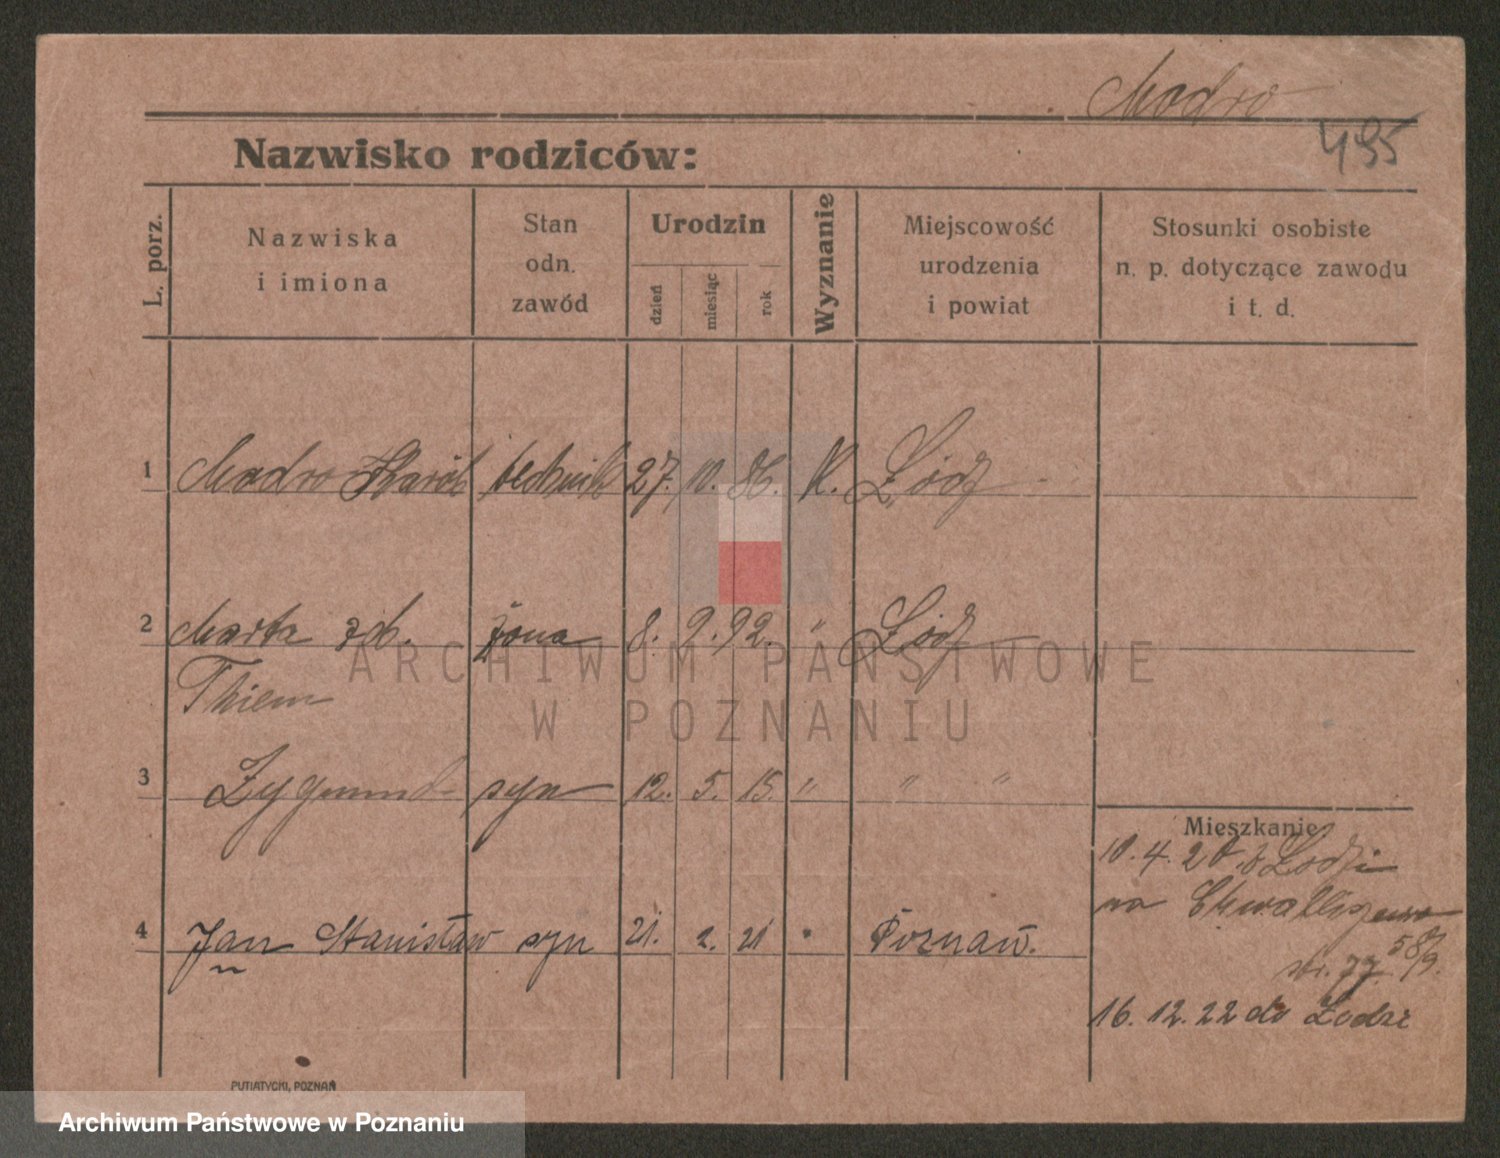 Modro
495
Nazwisko rodziców:
L. porz.
Nazwiska
i imiona
Stan
odn.
zawód
Urodzin
dzień
miesiąc
rok
Wyznanie
Miejscowość
urodzenia
i powiat
Stosunki osobiste
n. p. dotyczące zawodu
i t. d.
1 Modro Karol technik 27. 10. 86. K. Łódź
2 Marta zd. żona 8. 9. 92. " Łódź
Thiem
3 Zygmund syn 12. 5. 15. " " "
Mieszkanie:
10. 4. 20. z Łodzi
na
4 Jan Stanisław syn 21. 2. 21 " Poznań.
str. 77.
16. 12. 22 do Łodzi
PUTIATYCKI, POZNAŃ
ARCHIWUM PAŃSTWOWE
W POZNANIU
Archiwum Państwowe w Poznaniu